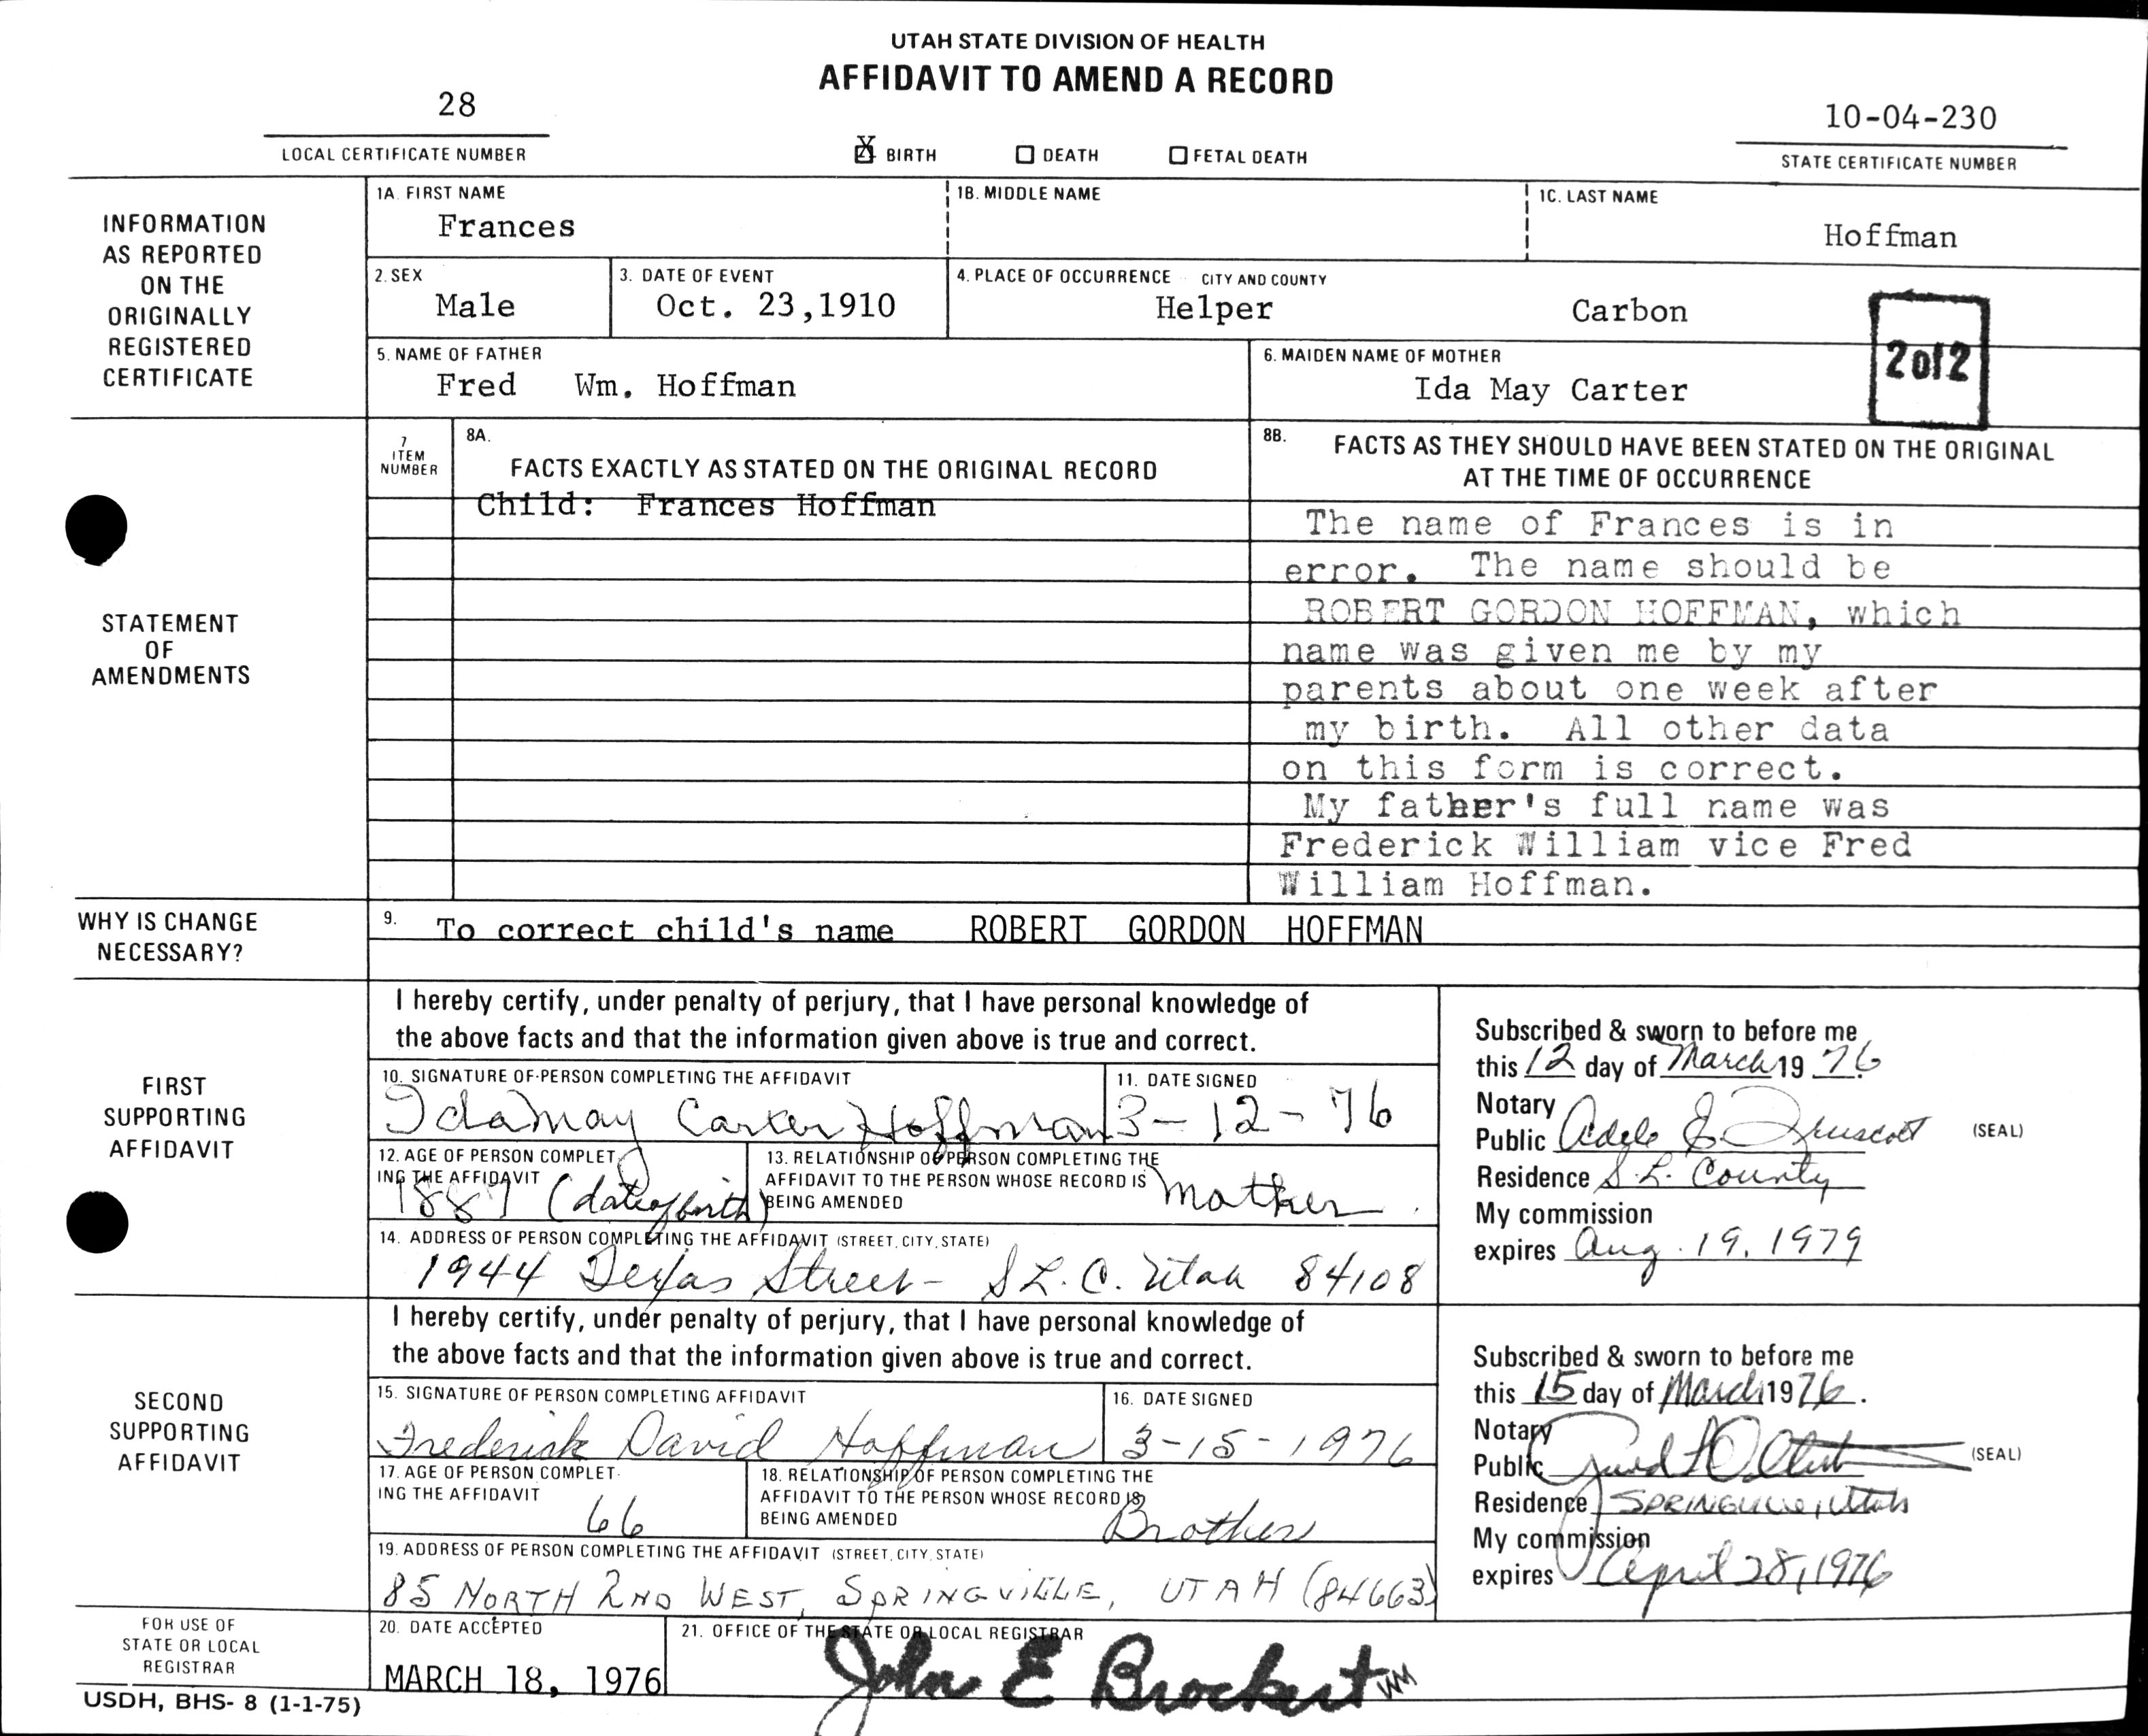 UTAH STATE DIVISION OF HEALTH
AFFIDAVIT TO AMEND A RECORD
28
LOCAL CERTIFICATE NUMBER
X BIRTH DEATH FETAL DEATH
10-04-230
STATE CERTIFICATE NUMBER
INFORMATION
AS REPORTED
ON THE
ORIGINALLY
REGISTERED
CERTIFICATE
1A. FIRST NAME
Frances
1B. MIDDLE NAME
1C. LAST NAME
Hoffman
2. SEX
Male
3. DATE OF EVENT
Oct. 23,1910
4. PLACE OF OCCURRENCE CITY AND COUNTY
Helper Carbon
5. NAME OF FATHER
Fred Wm. Hoffman
6. MAIDEN NAME OF MOTHER
Ida May Carter
2 of 2
STATEMENT
OF
AMENDMENTS
7
ITEM
NUMBER
8A.
FACTS EXACTLY AS STATED ON THE ORIGINAL RECORD
Child: Frances Hoffman
8B.
FACTS AS THEY SHOULD HAVE BEEN STATED ON THE ORIGINAL
AT THE TIME OF OCCURRENCE
The name of Frances is in
error. The name should be
ROBERT GORDON HOFFMAN, which
name was given me by my
parents about one week after
my birth. All other data
on this form is correct.
My father's full name was
Frederick William vice Fred
William Hoffman.
WHY IS CHANGE
NECESSARY?
9. To correct child's name ROBERT GORDON HOFFMAN
FIRST
SUPPORTING
AFFIDAVIT
I hereby certify, under penalty of perjury, that I have personal knowledge of
the above facts and that the information given above is true and correct.
10. SIGNATURE OF PERSON COMPLETING THE AFFIDAVIT
Ida May Carter Hoffman
11. DATE SIGNED
3-12-76
12. AGE OF PERSON COMPLET
ING THE AFFIDAVIT
1887 (date of birth)
13. RELATIONSHIP OF PERSON COMPLETING THE
AFFIDAVIT TO THE PERSON WHOSE RECORD IS
BEING AMENDED
mother
14. ADDRESS OF PERSON COMPLETING THE AFFIDAVIT (STREET, CITY, STATE)
1944 Texas Street - S L. C. Utah 84108
Subscribed & sworn to before me
this 12 day of March 19 76
Notary
Public Adele E. Truscott (SEAL)
Residence S.L. County
My commission
expires Aug. 19, 1979
SECOND
SUPPORTING
AFFIDAVIT
I hereby certify, under penalty of perjury, that I have personal knowledge of
the above facts and that the information given above is true and correct.
15. SIGNATURE OF PERSON COMPLETING AFFIDAVIT
Frederick David Hoffman
16. DATE SIGNED
3-15-1976
17. AGE OF PERSON COMPLET-
ING THE AFFIDAVIT
66
18. RELATIONSHIP OF PERSON COMPLETING THE
AFFIDAVIT TO THE PERSON WHOSE RECORD IS
BEING AMENDED
Brother
19. ADDRESS OF PERSON COMPLETING THE AFFIDAVIT (STREET, CITY, STATE)
85 NORTH 2ND WEST, SPRINGVILLE, UTAH (84663)
Subscribed & sworn to before me
this 15 day of March 1976.
Notary
Public (SEAL)
Residence SPRINGVILLE, Utah
My commission
expires April 28, 1976
FOR USE OF
STATE OR LOCAL
REGISTRAR
20. DATE ACCEPTED
MARCH 18, 1976
21. OFFICE OF THE STATE OR LOCAL REGISTRAR
John E Brockert
USDH, BHS- 8 (1-1-75)